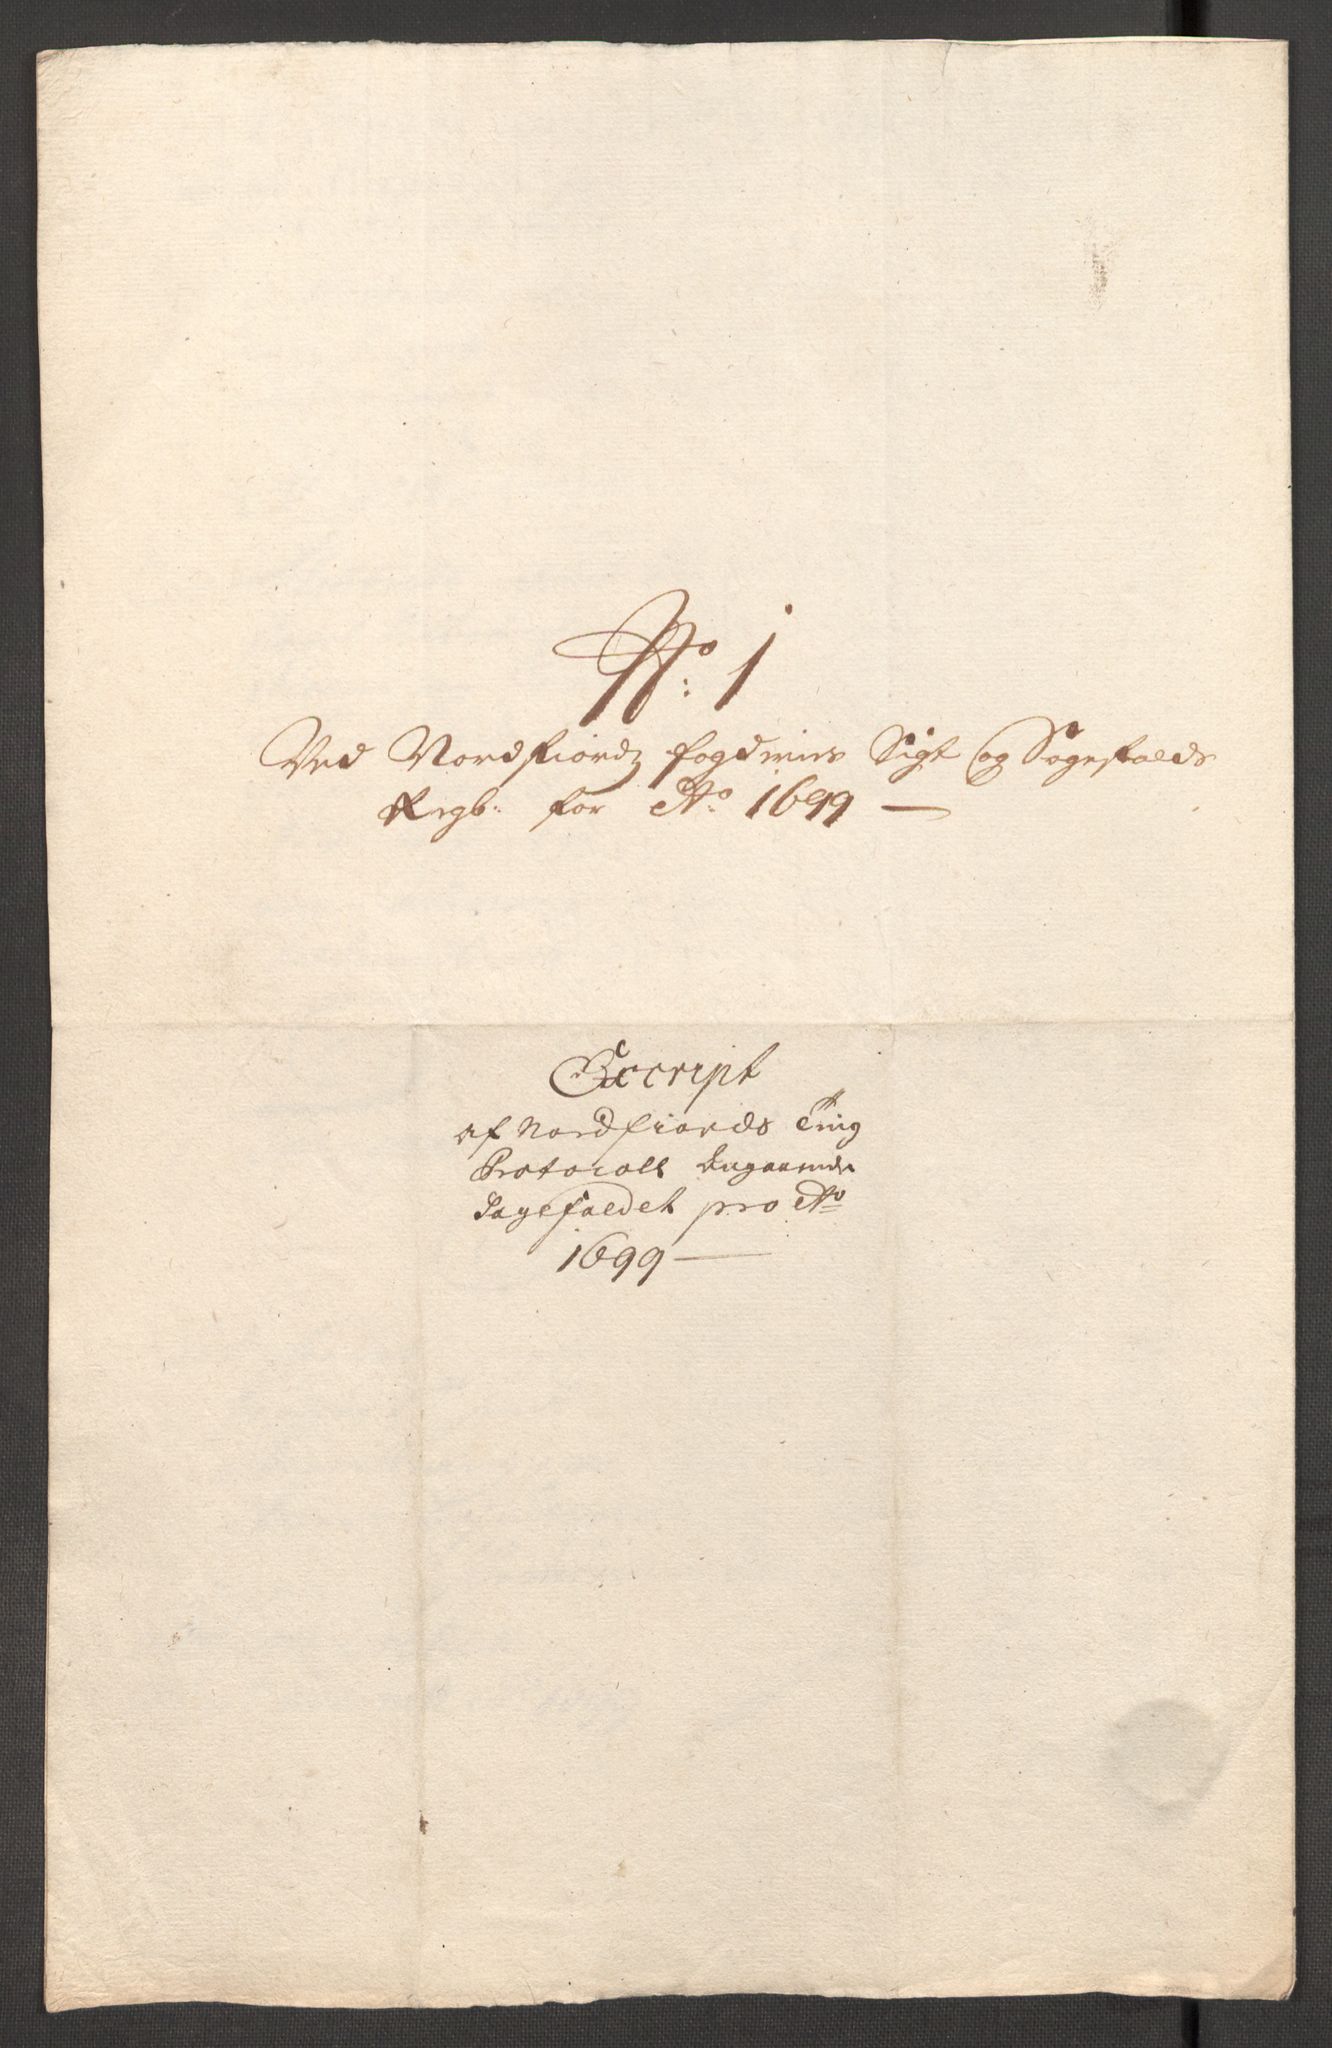 No: 1
Ved Nordfiordz fogderies Sigt og Sagefalds
Regb: for Ao: 1699
Excript
af Nordfiords Ting
Protocoll Angaaende
Sagefaldet pro Ao
1699